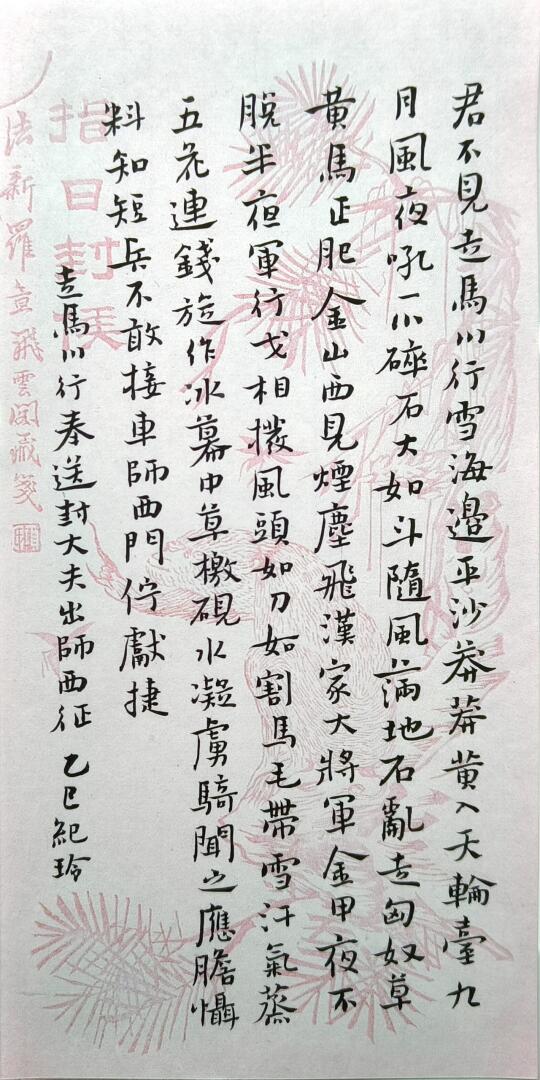 君不見走馬川行雪海邊平沙莽莽黃入天輪臺九
月風夜吼一川碎石大如斗隨風滿地石亂走匈奴草
黃馬正肥金山西見煙塵飛漢家大將軍金甲夜不
脫半夜軍行戈相撥風頭如刀如割馬毛帶雪汗氣蒸
五花連錢旋作冰幕中草檄硯水凝虜騎聞之應膽懾
料知短兵不敢接車師西門佇獻捷
走馬川行奉送封大夫出師西征 乙巳紀玲
指日封侯
法新羅意飛雲閣藏箋